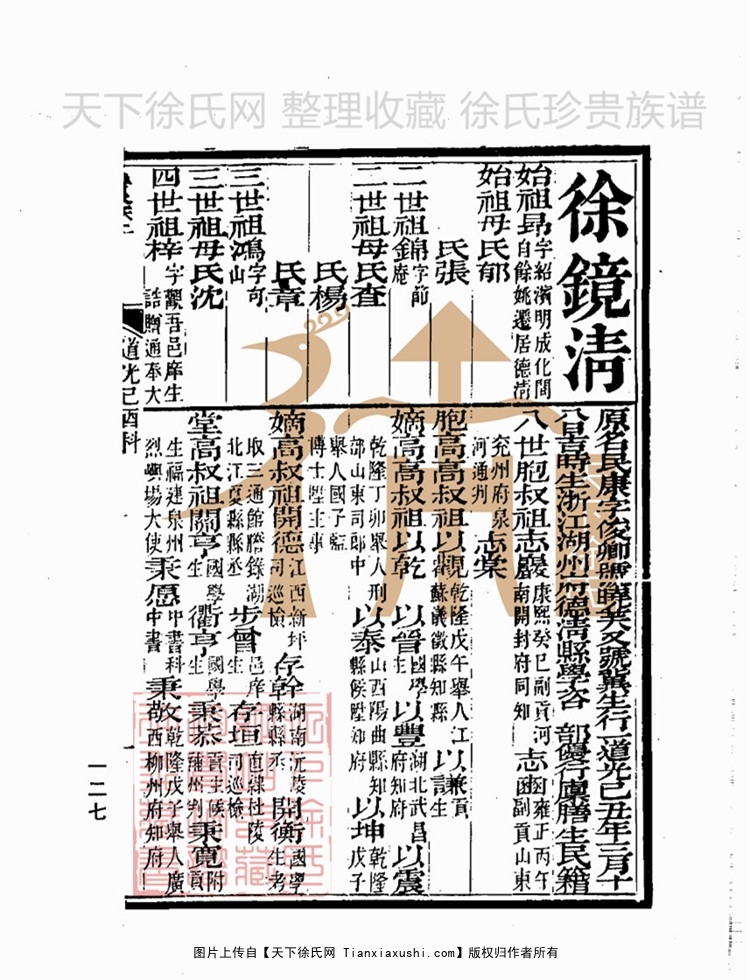 天下徐氏网 整理收藏 徐氏珍贵族谱
徐鏡淸
始祖昂字紹濱明成化間自餘姚遷居德淸
始祖母氏郁
氏張
二世祖錦字節庵
二世祖母氏查
氏楊
氏章
三世祖鴻字可山
三世祖母氏沈
四世祖梓字觀吾邑庠生誥贈通奉大
原名民康字俊卿號又號冀生行一道光己丑年三月十
八日吉時生浙江湖州府德淸縣學咨部優行廩膳生民籍
八世胞叔祖志慶康熙癸巳副貢河南開封府同知 志函雍正丙午副貢山東
兖州府泉河通判 志棠
胞高高叔祖以觀乾隆戊午舉人江蘇儀徵縣知縣 以謙貢生
嫡高高叔祖以乾 以晉國學生 以豐湖北武昌府知府 以震
乾隆丁卯舉人刑部山東司郎中 以泰山西陽曲縣知縣候陞知府 以坤乾隆戊子
舉人國子監博士陞主事
嫡高叔祖開德江西新坪司巡檢 存幹湖南沅陵縣縣丞 開衡國學生考
取三通館謄錄湖北江夏縣縣丞 步曾邑庠生 存垣直綠杜陵司巡檢
堂高叔祖關亨國學生 衢亨國學生 秉恭貢生候薩州判 秉寬附貢
生福建泉州烈嶼場大使 秉愿中書科中書 秉敬乾隆戊子舉人廣西柳州府知府
道光己酉科
一二七
图片上传自【天下徐氏网 Tianxiaxushi.com】版权归作者所有